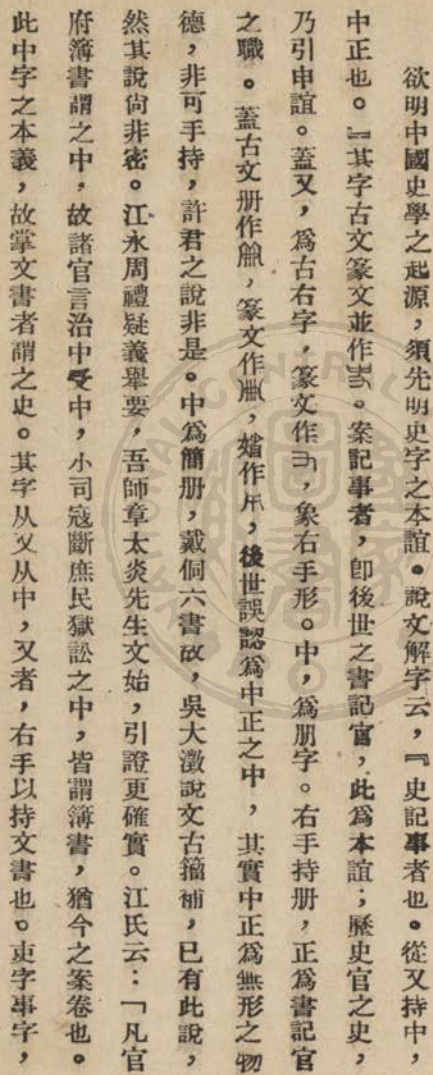 欲明中國史學之起源，須先明史字之本誼。說文解字云，『史記事者也。從又持中，
中正也。』其字古文篆文並作。案記事者，卽後世之書記官，此爲本誼；歷史官之史，
乃引申誼。蓋又，爲古右字，篆文作，象右手形。中，爲册字。右手持册，正爲書記官
之職。蓋古文册作，篆文作，婼作，後世誤認爲中正之中，其實中正爲無形之物
德，非可手持，許君之說非是。中爲簡册，戴侗六書故，吳大澂說文古籀補，已有此說，
然其說尙非密。江永周禮疑義舉要，吾師章太炎先生文始，引證更確實。江氏云：「凡官
府簿書謂之中，故諸官言治中受中，小司寇斷庶民獄訟之中，皆謂簿書，猶今之案卷也。
此中字之本義，故掌文書者謂之史。其字从又从中，又者，右手以持文書也。吏字事字，